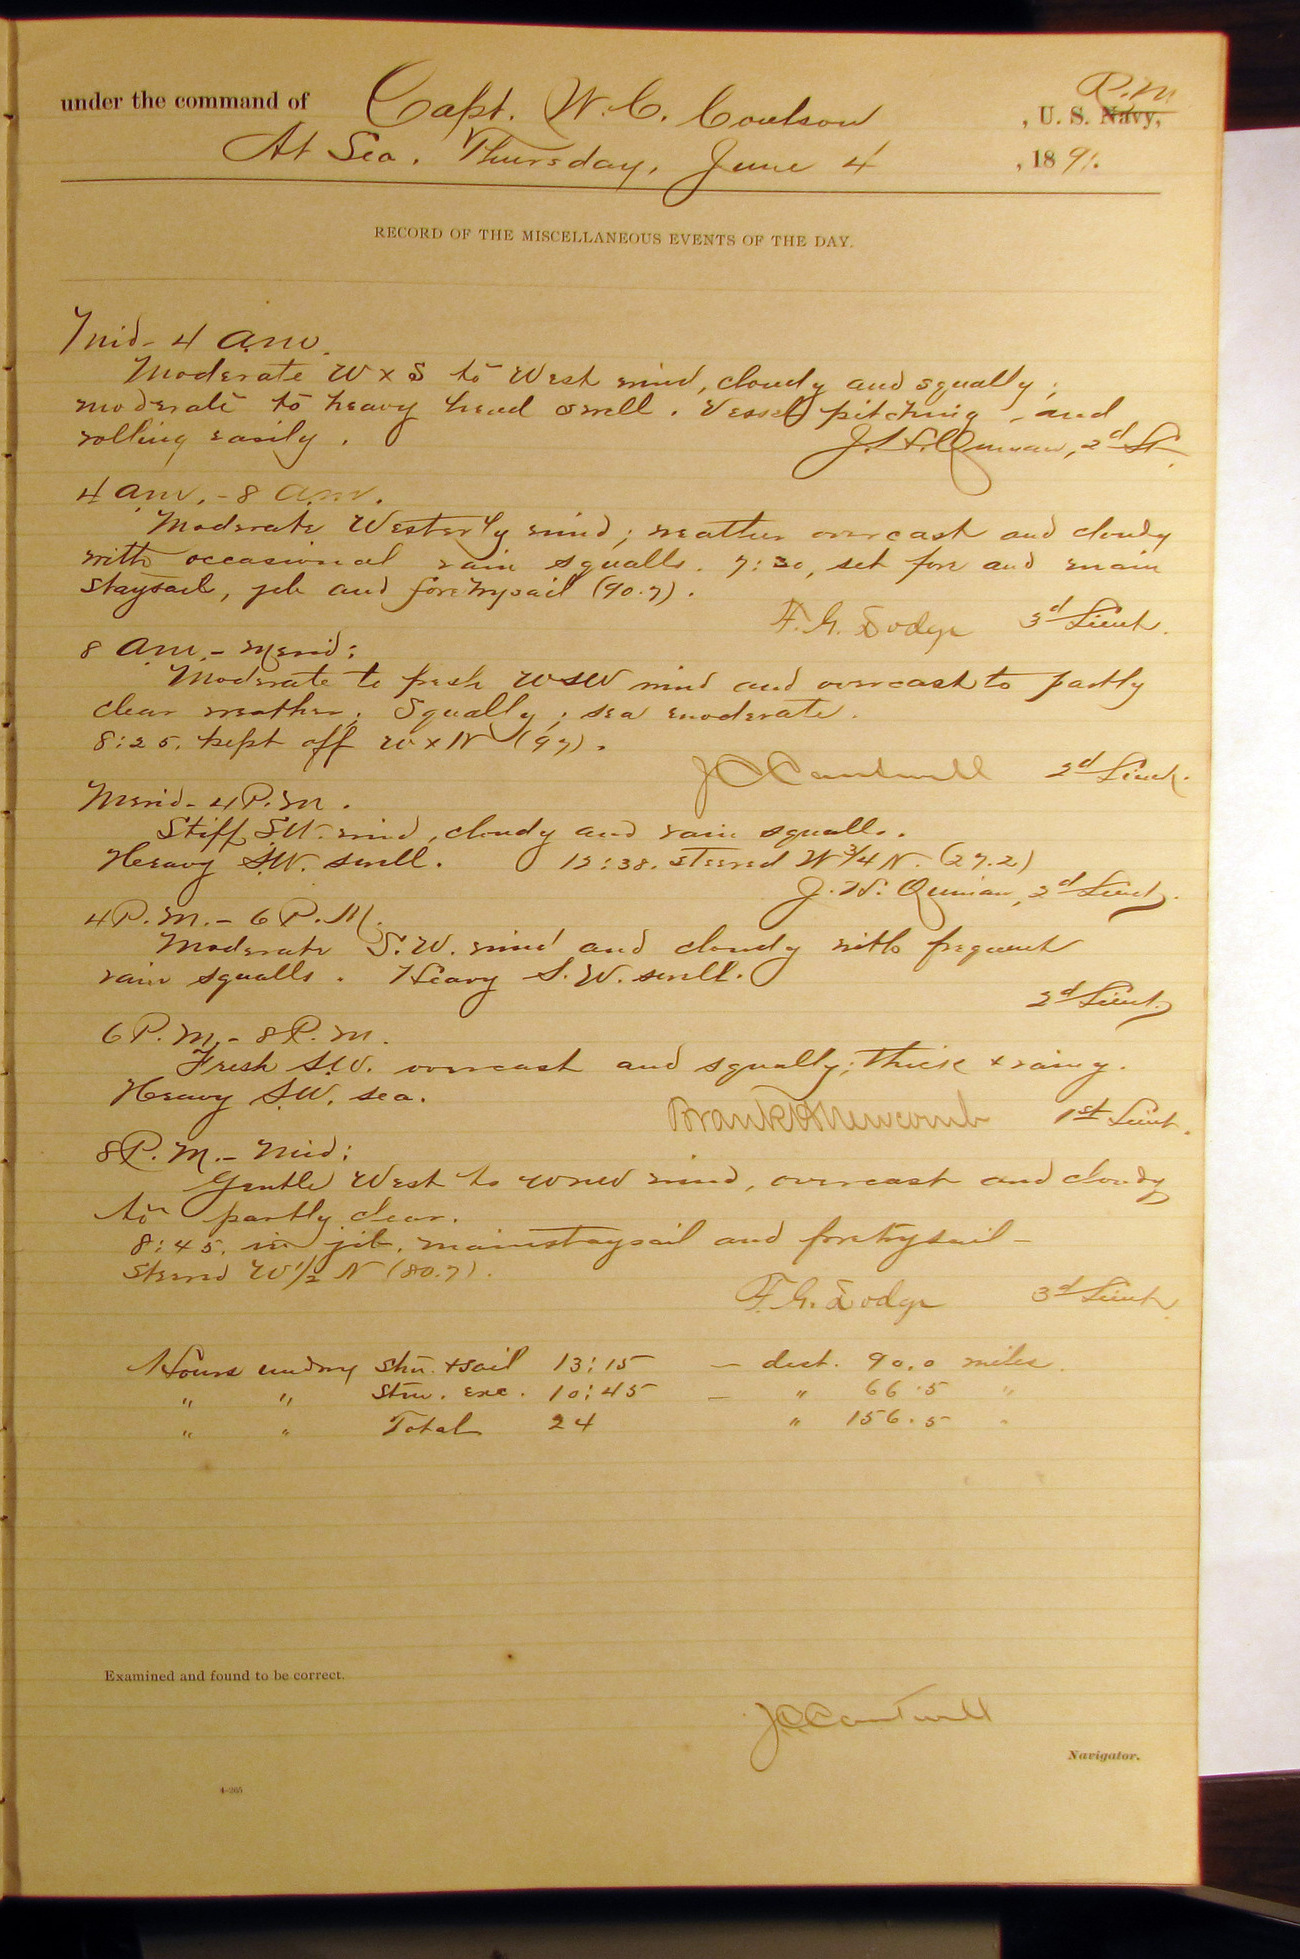 under the command of Capt. W. C. Coulson , U. S. Navy, R.M
At Sea. Thursday, June 4 , 1891.
RECORD OF THE MISCELLANEOUS EVENTS OF THE DAY.
Mid - 4 a.m.
Moderate W x S to West wind, cloudy and squally;
moderate to heavy head swell. Vessel pitching and
rolling easily.
Quinan, 2d Lt.
4 a.m. - 8 a.m.
Moderate Westerly wind; weather overcast and cloudy
with occasional rain squalls. 7:30, set fore and main
staysail, jib and foretrysail (90.7).
F. G. Dodge 3d Lieut.
8 a.m. - Merid:
Moderate to fresh WSW wind and overcast to partly
clear weather; Squally; sea moderate.
8:25. kept off W x N (97).
J C Cantwell 2d Lieut.
Merid - 4 P.M.
Stiff S.W. wind, cloudy and rain squalls.
Heavy S.W. swell. 12:38. steered W 3/4 N. (27.2)
J. H. Quinan, 2d Lieut.
4 P.M. - 6 P.M.
Moderate S.W. wind and cloudy with frequent
rain squalls. Heavy S.W. swell.
2d Lieut.
6 P.M. - 8 P.M.
Fresh S.W. overcast and squally; thick + rainy.
Heavy S.W. sea.
Frank H Newcomb 1st Lieut.
8 P.M. - Mid:
Gentle West to WNW wind, overcast and cloudy
to partly clear.
8:45. in jib, mainstaysail and foretrysail -
steered W 1/2 N (80.7).
F. G. Dodge 3d Lieut.
Hours under stm. + sail 13:15 - dist. 90.0 miles.
" " stm. exc. 10:45 - " 66.5 "
" " Total 24 " 156.5 "
Examined and found to be correct.
J C Cantwell
Navigator.
4-265